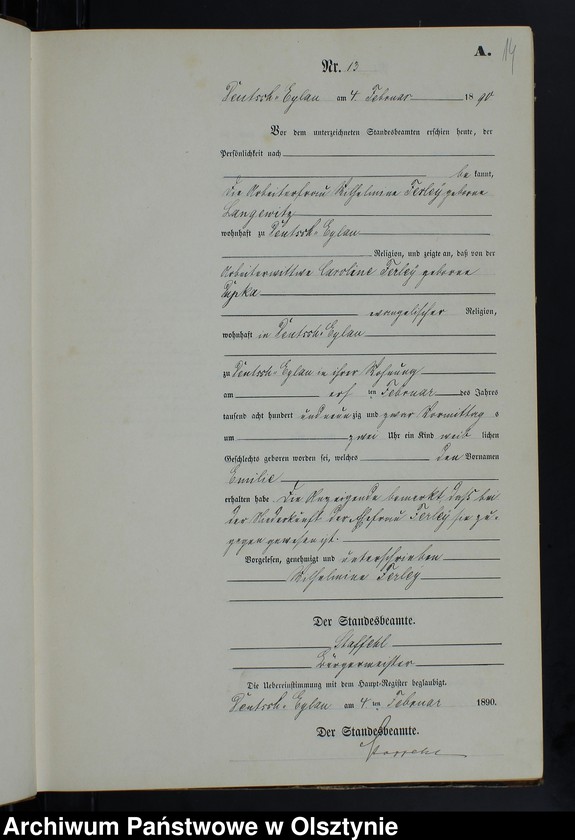 A. 14
Nr. 13
Deutsch-Eylau am 4. Februar 1890
Vor dem unterzeichneten Standesbeamten erschien heute, der
Persönlichkeit nach
be kannt,
die Arbeiterfrau Wilhelmine Ferley geborene
Langewitz
wohnhaft zu Deutsch-Eylau
Religion, und zeigte an, daß von der
Arbeiterwittwe Caroline Ferley geborene
Pupka
evangelischer Religion,
wohnhaft in Deutsch-Eylau
zu Deutsch-Eylau in ihrer Wohnung
am ersten Februar des Jahres
tausend acht hundert und neunzig und zwar Vormittags
um zwei Uhr ein Kind weiblichen
Geschlechts geboren worden sei, welches den Vornamen
Emilie
erhalten habe. Die Anzeigende bemerkt, daß bei
der Niederkunft der Ehefrau Ferley sie zu-
gegen gewesen ist.
Vorgelesen, genehmigt und unterschrieben
Wilhelmine Ferley
Der Standesbeamte.
Staffehl
Bürgermeister
Die Uebereinstimmung mit dem Haupt-Register beglaubigt.
Deutsch-Eylau am 4ten Februar 1890.
Der Standesbeamte.
Staffehl
Archiwum Państwowe w Olsztynie